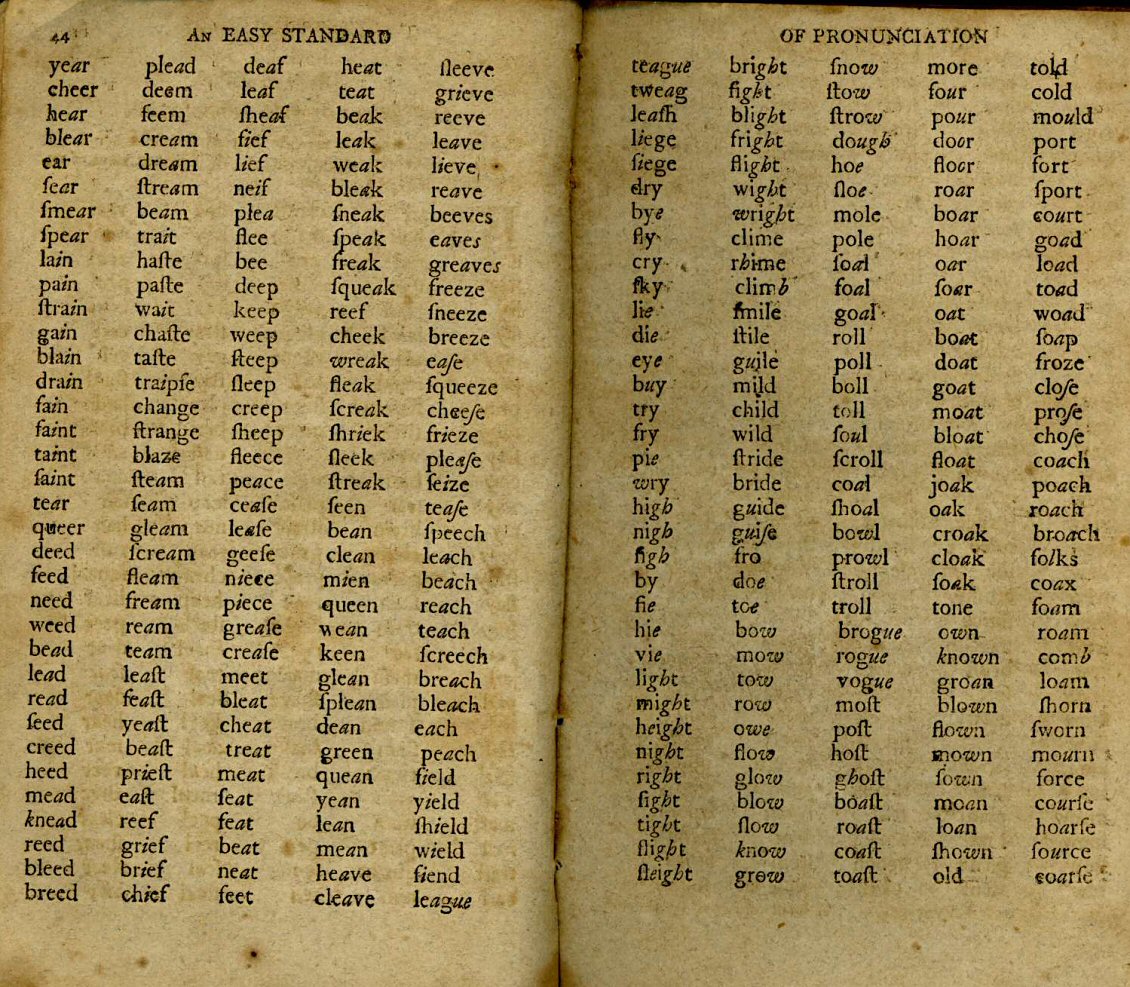 44 AN EASY STANDARD
year plead deaf heat ſleeve
cheer deem leaf teat grieve
hear ſeem ſheaf beak reeve
blear cream fief leak leave
ear dream lief weak lieve
fear ſtream neif bleak reave
ſmear beam plea ſneak beeves
ſpear trait flee ſpeak eaves
lain haſte bee freak greaves
pain paſte deep ſqueak freeze
ſtrain wait keep reef ſneeze
gain chaſte weep cheek breeze
blain taſte ſteep wreak eaſe
drain traipſe ſleep fleak ſqueeze
fain change creep ſcreak cheeſe
faint ſtrange ſheep ſhriek frieze
taint blaze fleece ſleek pleaſe
ſaint ſteam peace ſtreak ſeize
tear ſeam ceaſe ſeen teaſe
queer gleam leaſe bean ſpeech
deed ſcream geeſe clean leach
feed fleam niece mien beach
need fream piece queen reach
weed ream greaſe wean teach
bead team creaſe keen ſcreech
lead leaſt meet glean breach
read feaſt bleat ſplean bleach
ſeed yeaſt cheat dean each
creed beaſt treat green peach
heed prieſt meat quean field
mead eaſt ſeat yean yield
knead reef feat lean ſhield
reed grief beat mean wield
bleed brief neat heave fiend
breed chief feet cleave league
OF PRONUNCIATION
teague bright ſnow more told
tweag fight ſtow four cold
leaſh blight ſtrow pour mould
liege fright dough door port
ſiege flight hoe floor fort
dry wight floe roar ſport
bye wright mole boar court
fly clime pole hoar goad
cry rhime ſoal oar load
ſky climb foal ſoar toad
lie ſmile goal oat woad
die ſtile roll boat ſoap
eye guile poll doat froze
buy mild boll goat cloſe
try child toll moat proſe
fry wild ſoul bloat choſe
pie ſtride ſcroll float coach
wry bride coal joak poach
high guide ſhoal oak roach
nigh guiſe bowl croak broach
ſigh fro prowl cloak folks
by doe ſtroll ſoak coax
fie toe troll tone foam
hie bow brogue own roam
vie mow rogue known comb
light tow vogue groan loam
might row moſt blown ſhorn
height owe poſt flown ſworn
night flow hoſt mown mourn
right glow ghoſt ſown force
ſight blow boaſt moan courſe
tight ſlow roaſt loan hoarſe
flight know coaſt ſhown ſource
ſleight grow toaſt old coarſe